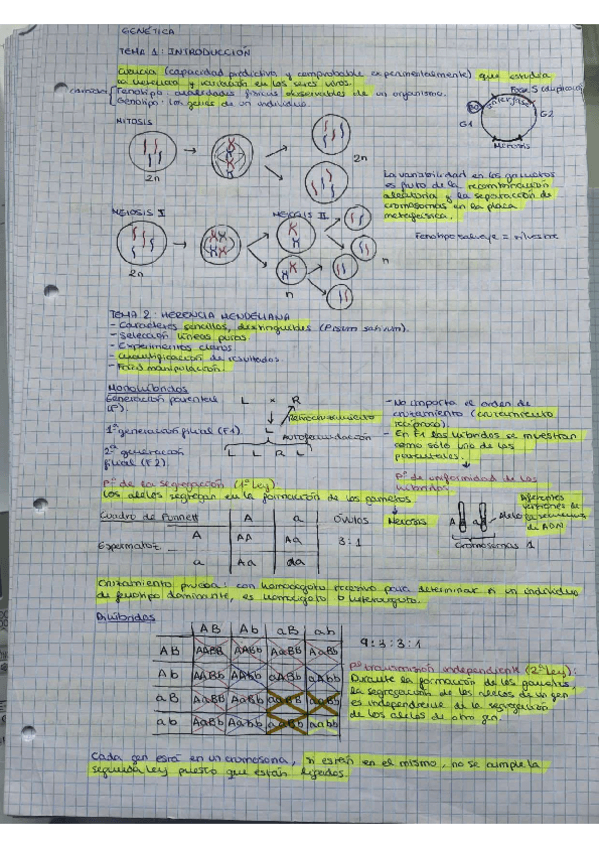 GENÉTICA
TEMA 1: INTRODUCCIÓN
Ciencia (capacidad productiva y comprobable experimentalmente) que estudia
la herencia y variación en los seres vivos.
Fenotipo: cualidades físicas observables de un organismo.
Genotipo: los genes de un individuo.
Fase S (duplicación)
Interfase
G1
G2
MITOSIS
2n
2n
La variabilidad en los gametos
es fruto de la recombinación
aleatoria y la separación de
cromosomas en la placa
metafásica.
Fenotipo salvaje = silvestre
MEIOSIS I
MEIOSIS II
2n
n
n
TEMA 2: HERENCIA MENDELIANA
- Caracteres sencillos, distinguibles (Pisum sativum).
- Selección líneas puras.
- Experimentos claros.
- Cuantificación de resultados.
- Fácil manipulación.
Monohíbridos
Generación parental
(P).
L × R
Retrocruzamiento
1ª generación filial (F1).
L
Autofecundación
2ª generación
filial (F2).
L L R L
- No importa el orden de
cruzamiento (cruzamiento
recíproco).
- En F1 los híbridos se muestran
como sólo uno de los
parentales.
Pº de uniformidad de los
híbridos
Pº de la segregación (1ª Ley).
Los alelos segregan en la formación de los gametos
Meiosis
Cuadro de Punnett
A a Óvulos
Espermatoz.
A AA Aa 3:1
a Aa aa
A a
Alelo
Diferentes
versiones de
la secuencia
de ADN
Cromosomas 1
Cruzamiento prueba: con homocigoto recesivo para determinar si un individuo
de fenotipo dominante, es homocigoto o heterocigoto.
Dihíbridos
AB Ab aB ab
AB AABB AABb AaBB AaBb
Ab AABb AAbb aABb aAbb
aB AaBB AaBb aaBB aaBb
ab AaBb Aabb aaBb aabb
9:3:3:1
Pº transmisión independiente (2ª Ley):
Durante la formación de los gametos,
la segregación de los alelos de un gen
es independiente de la segregación
de los alelos de otro gen.
Cada gen está en un cromosoma, si están en el mismo, no se cumple la
segunda ley puesto que están ligados.